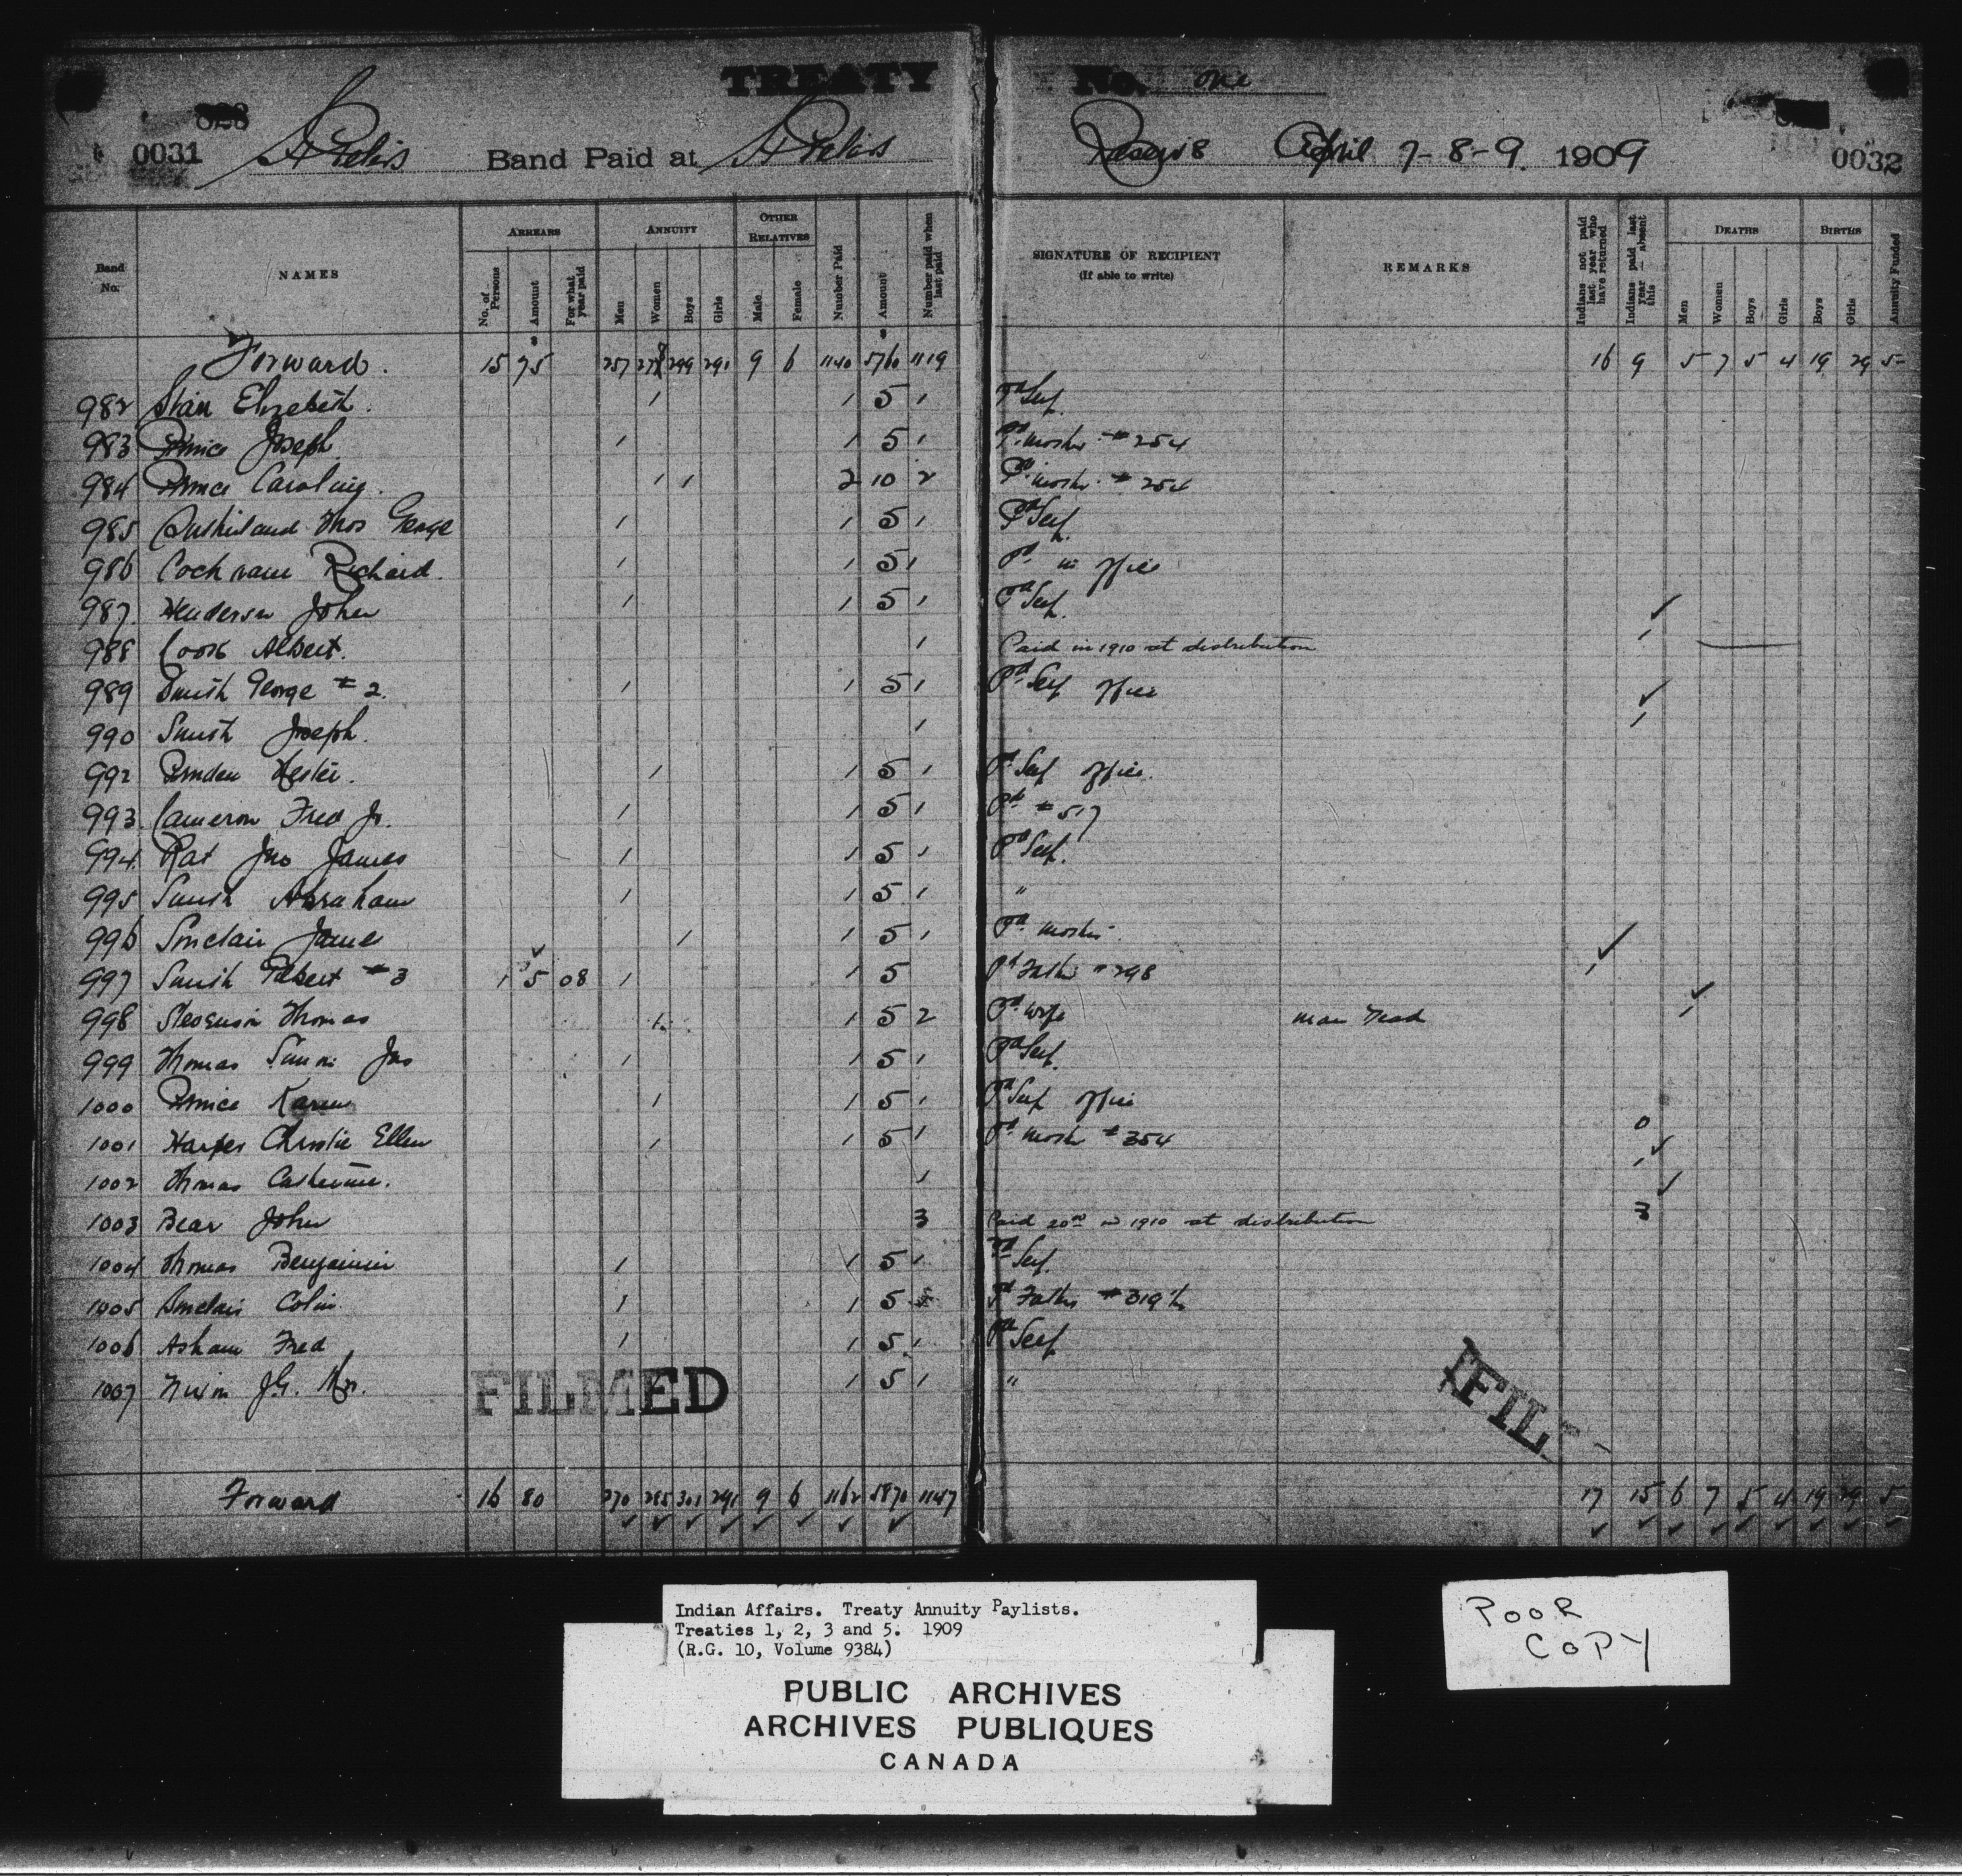 TREATY No. One
0031 St Peters Band Paid at St Peters Reserve April 7-8-9. 1909 0032
Band No. NAMES ARREARS No. of Persons Amount For what year paid ANNUITY Men Women Boys Girls OTHER RELATIVES Male Female Number Paid Amount Number paid when last paid SIGNATURE OF RECIPIENT (If able to write) REMARKS Indians not paid last year who have returned Indians paid last year absent this DEATHS Men Women Boys Girls BIRTHS Boys Girls Annuity Funded
Forward. 15 75 257 278 299 291 9 6 1140 5760 1119 16 9 5 7 5 4 19 29 5
982 Elizabeth. 1 1 5 1 Pd Self.
983 Prince Joseph 1 1 5 1 Pd mother # 254
984 Prince Caroline. 1 1 2 10 2 Pd mother # 254
985 Sutherland Thos George 1 1 5 1 Pd Self.
986 Cochrane Richard. 1 1 5 1 Pd in office
987. Henderson John 1 1 5 1 Pd Self. ✓
988 Cook Albert. 1 Paid in 1910 at distribution 1
989 Smith George # 2. 1 1 5 1 Pd Self office ✓
990 Smith Joseph. 1 1
992 Pruden Hester. 1 1 5 1 Pd Self office.
993. Cameron Fred Jr. 1 1 5 1 Pd # 517
994. Rat Jno James 1 1 5 1 Pd Self.
995 Smith Abraham 1 1 5 1 "
996 Sinclair James 1 1 5 1 Pd mother. ✓
997 Smith Robert # 3 1 5 08 1 1 5 Pd Father # 298 1 ✓
998 Stevenson Thomas 1 1 5 2 Pd wife man dead 1
999 Thomas Simon Jas 1 1 5 1 Pd Self.
1000 Prince Karen 1 1 5 1 Pd Self office
1001 Harper Christie Ellen 1 1 5 1 Pd mother # 354 0 ✓
1002 Thomas Catherine. 1 1 ✓
1003 Bear John 3 Paid 20.00 in 1910 at distribution 3
1004 Thomas Benjamin 1 1 5 1 Pd Self.
1005 Sinclair Colin 1 1 5 Pd Father # 319½
1006 Asham Fred 1 1 5 1 Pd Self
1007 Nixon J.G. Mrs. 1 1 5 1 "
FILMED FIL
Forward 16 80 270 285 301 291 9 6 1162 5870 1147 17 15 6 7 5 4 19 29 5
✓ ✓ ✓ ✓ ✓ ✓ ✓ ✓ ✓ ✓ ✓ ✓ ✓ ✓ ✓ ✓ ✓
Indian Affairs. Treaty Annuity Paylists.
Treaties 1, 2, 3 and 5. 1909
(R.G. 10, Volume 9384)
PUBLIC ARCHIVES
ARCHIVES PUBLIQUES
CANADA
POOR
COPY